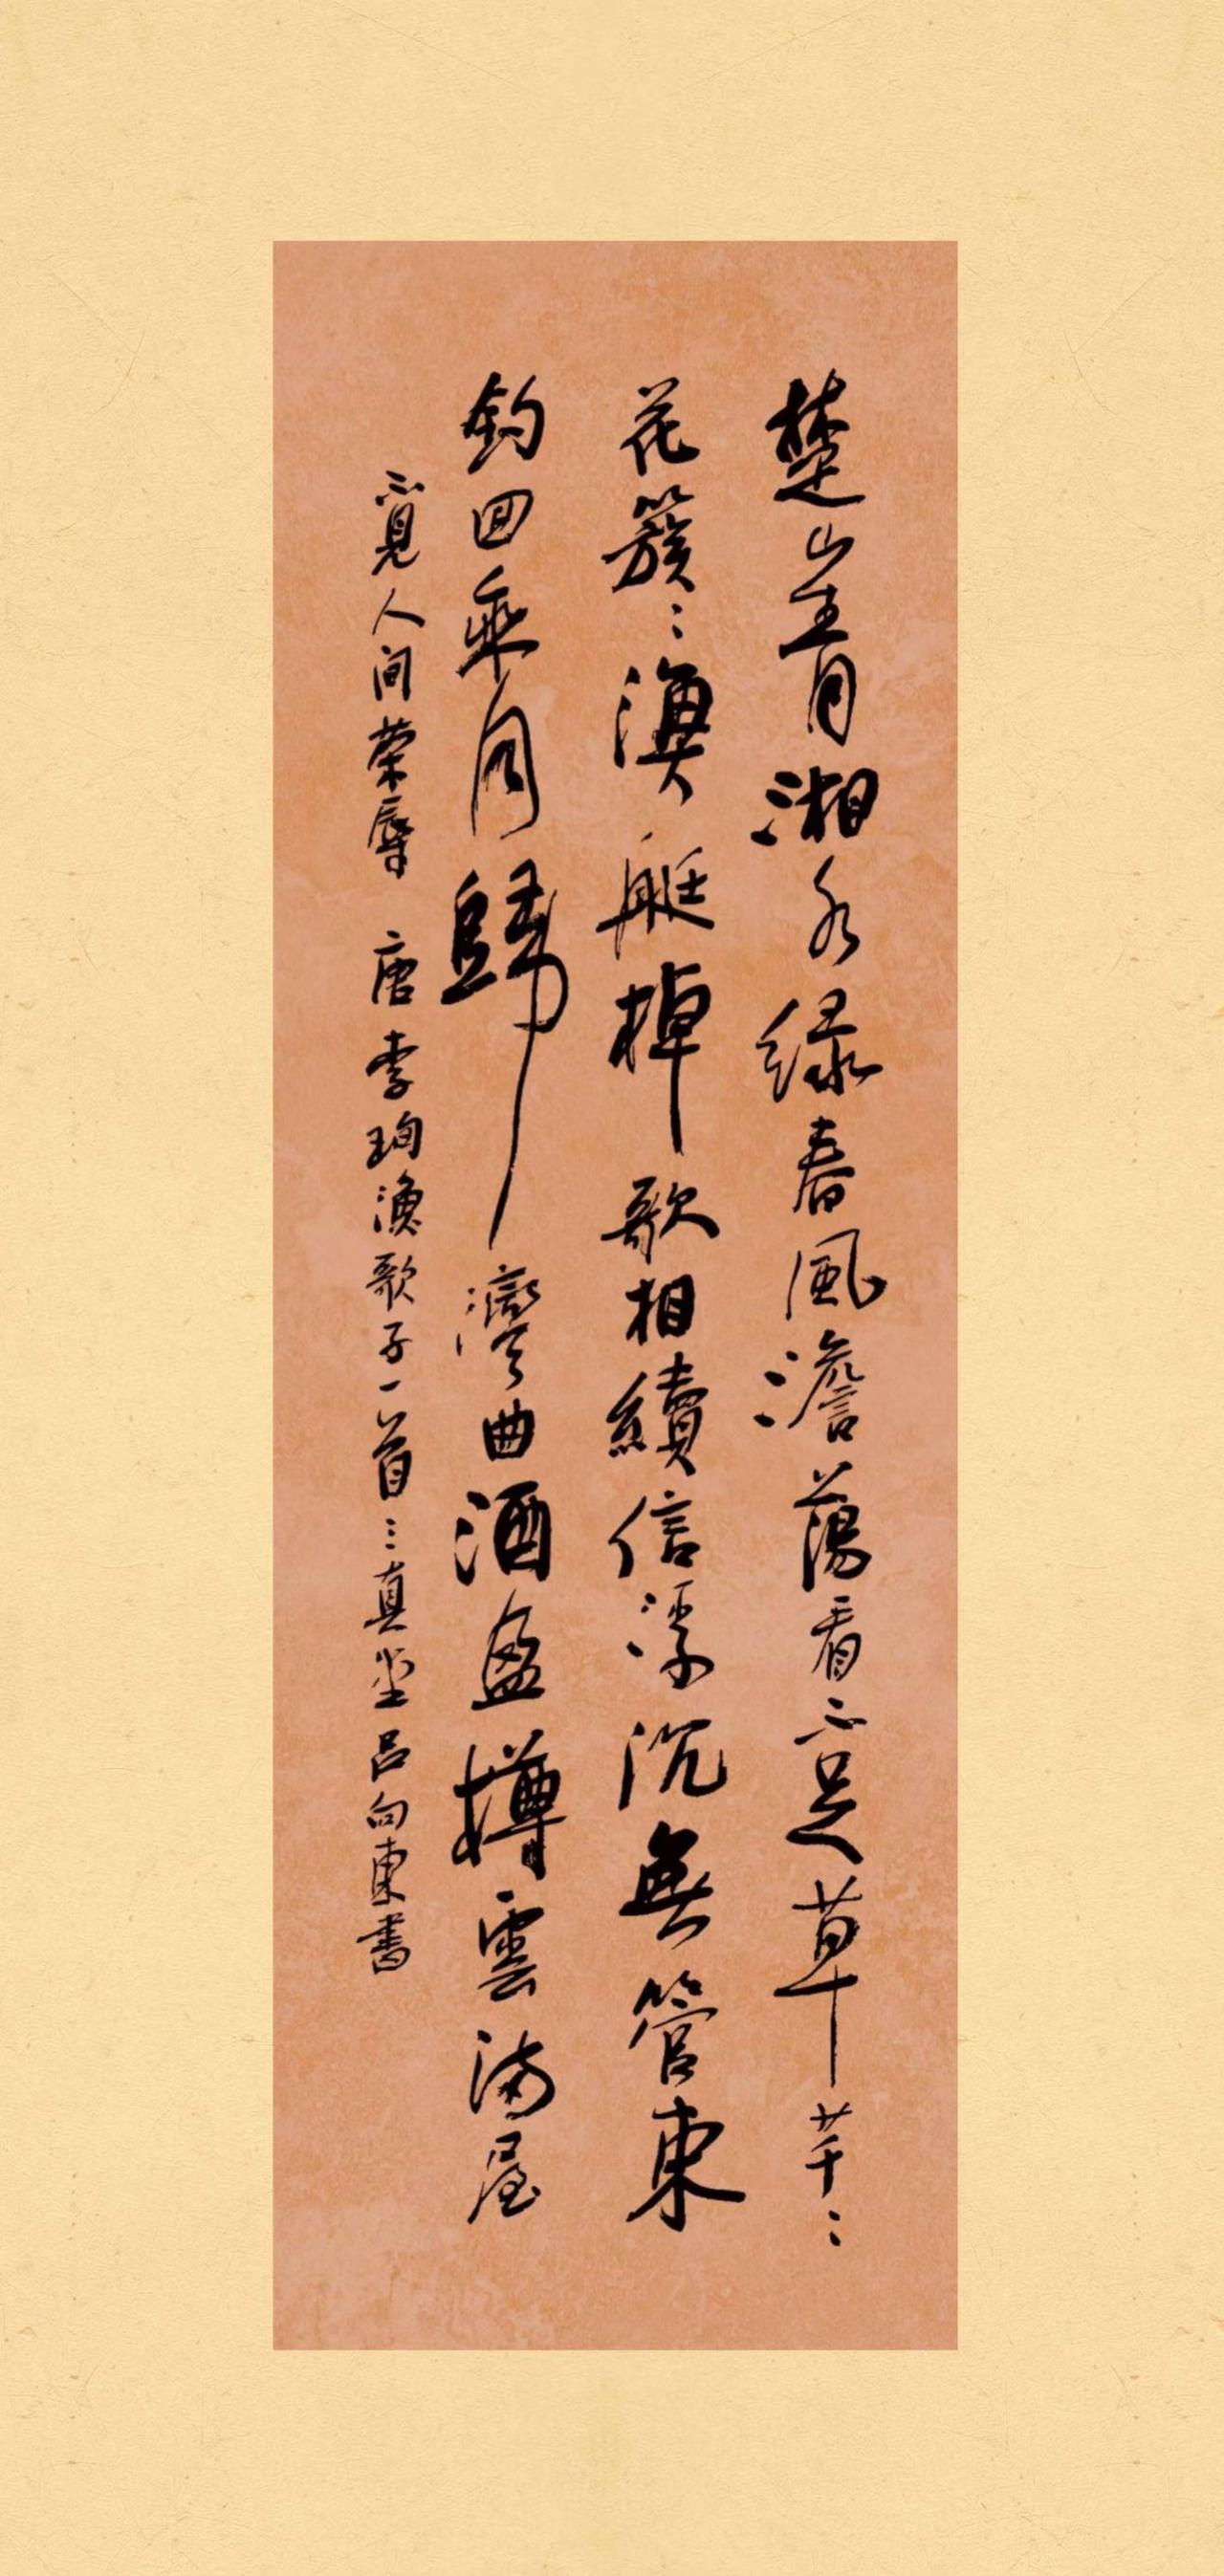 楚山青湘水緑春風澹蕩看不足草芊〻
花簇〻漁艇棹歌相續信浮沉無管束
釣回乘月歸灣曲酒盈樽雲滿屋
不見人间荣辱 唐李珣漁歌子一首 真堂吕向東書